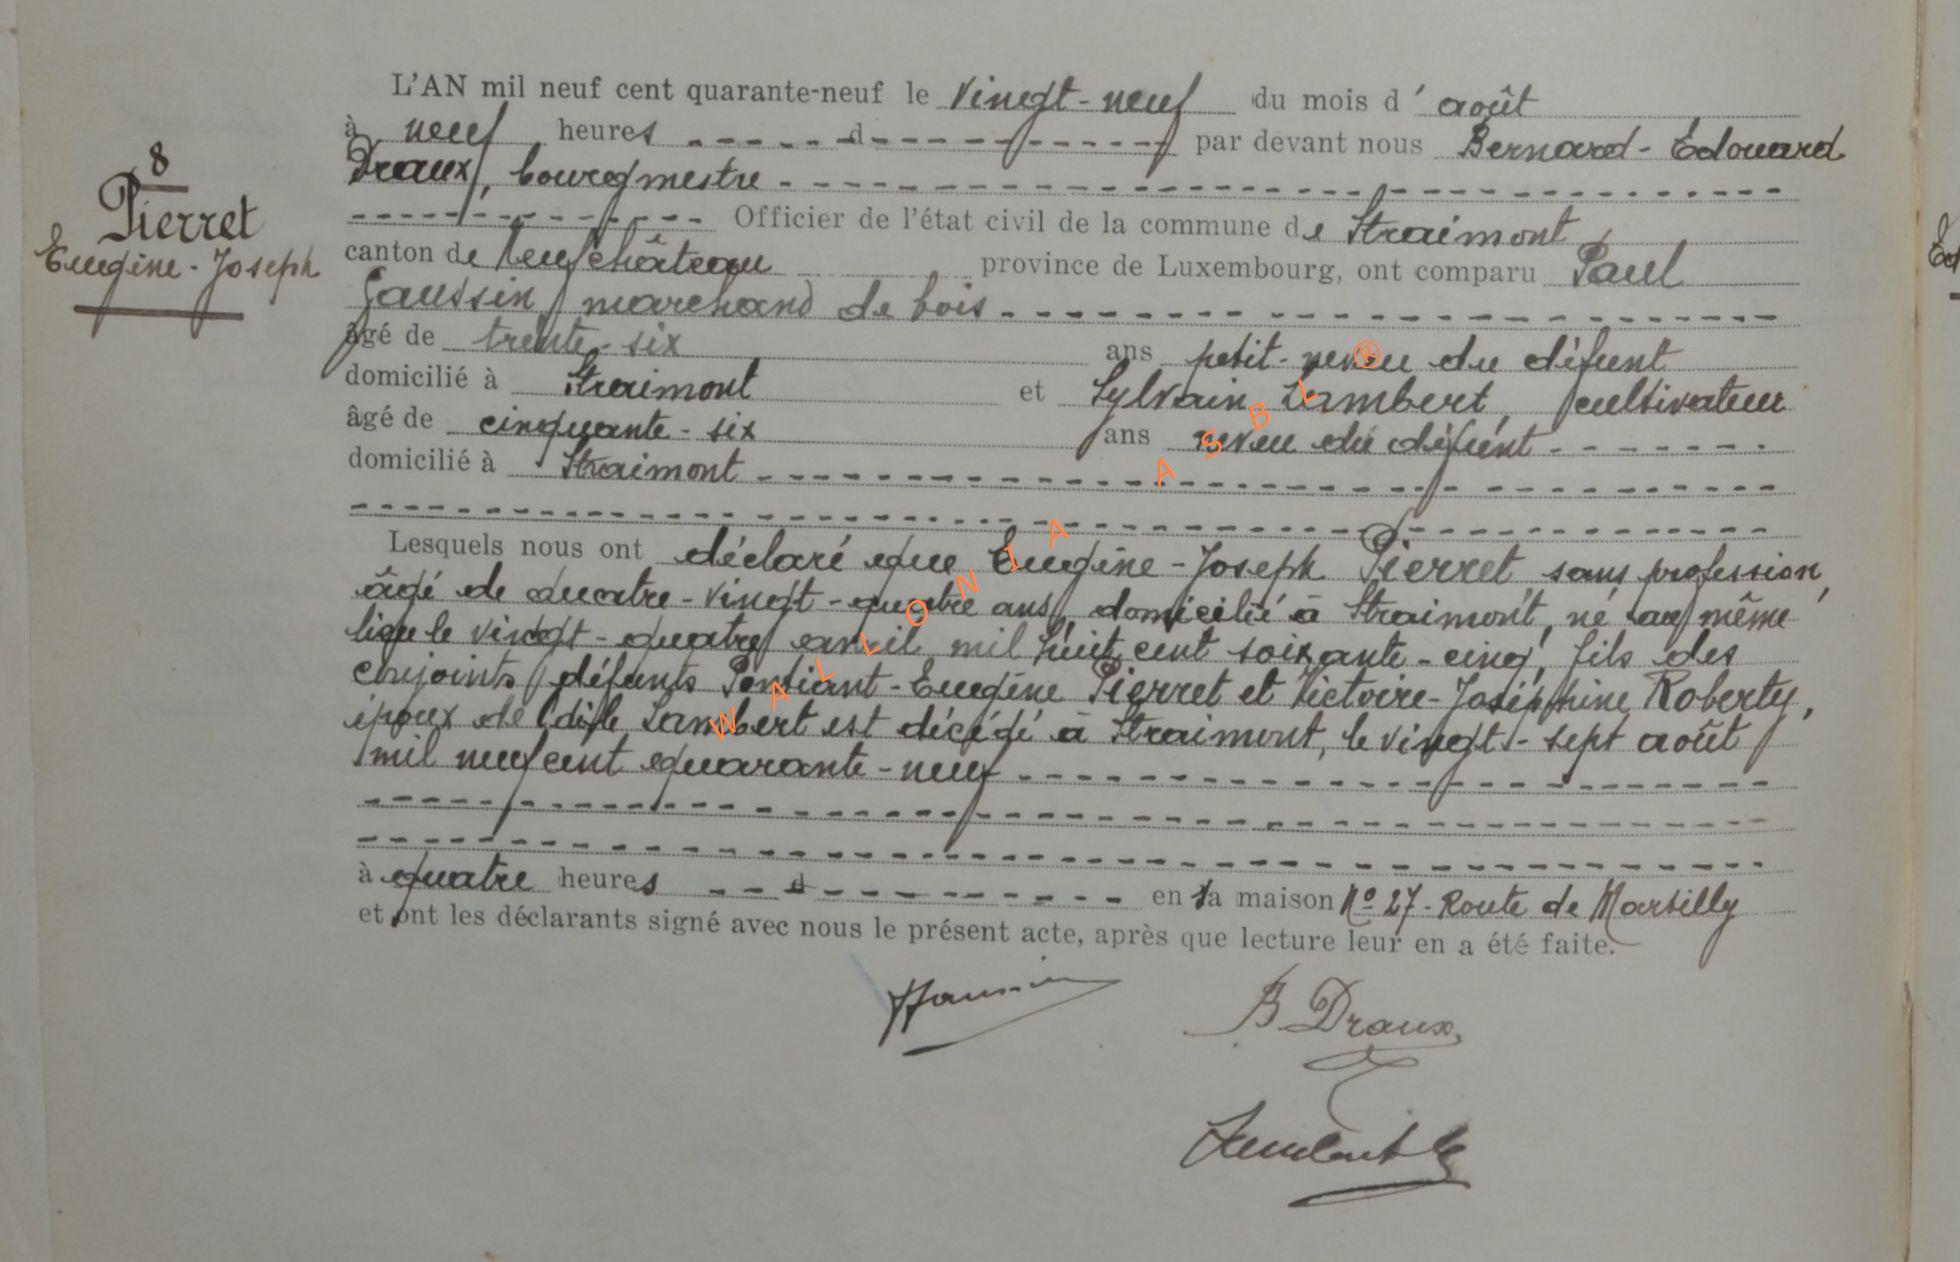 8
Pierret
Eugène-Joseph
L'AN mil neuf cent quarante-neuf le vingt-neuf du mois d'août
à neuf heures d par devant nous Bernard-Edouard
Draux, bourgmestre
Officier de l'état civil de la commune de Straimont
canton de Neufchâteau province de Luxembourg, ont comparu Paul
Jaussin, marchand de bois
âgé de trente-six ans petit-neveu du défunt
domicilié à Straimont et Sylvain Lambert, cultivateur
âgé de cinquante-six ans neveu du défunt
domicilié à Straimont
Lesquels nous ont déclaré que Eugène-Joseph Pierret sans profession,
âgé de quatre-vingt-quatre ans, domicilié à Straimont, né au même
lieu le vingt-quatre avril mil huit cent soixante-cinq, fils des
conjoints défunts Pontiant-Eugène Pierret et Victoire-Joséphine Roberty,
époux de Odile Lambert est décédé à Straimont, le vingt-sept août
mil neuf cent quarante-neuf
à quatre heures d en sa maison No 27-Route de Martilly
et ont les déclarants signé avec nous le présent acte, après que lecture leur en a été faite.
B Draux
WALLONIA ASBL ®